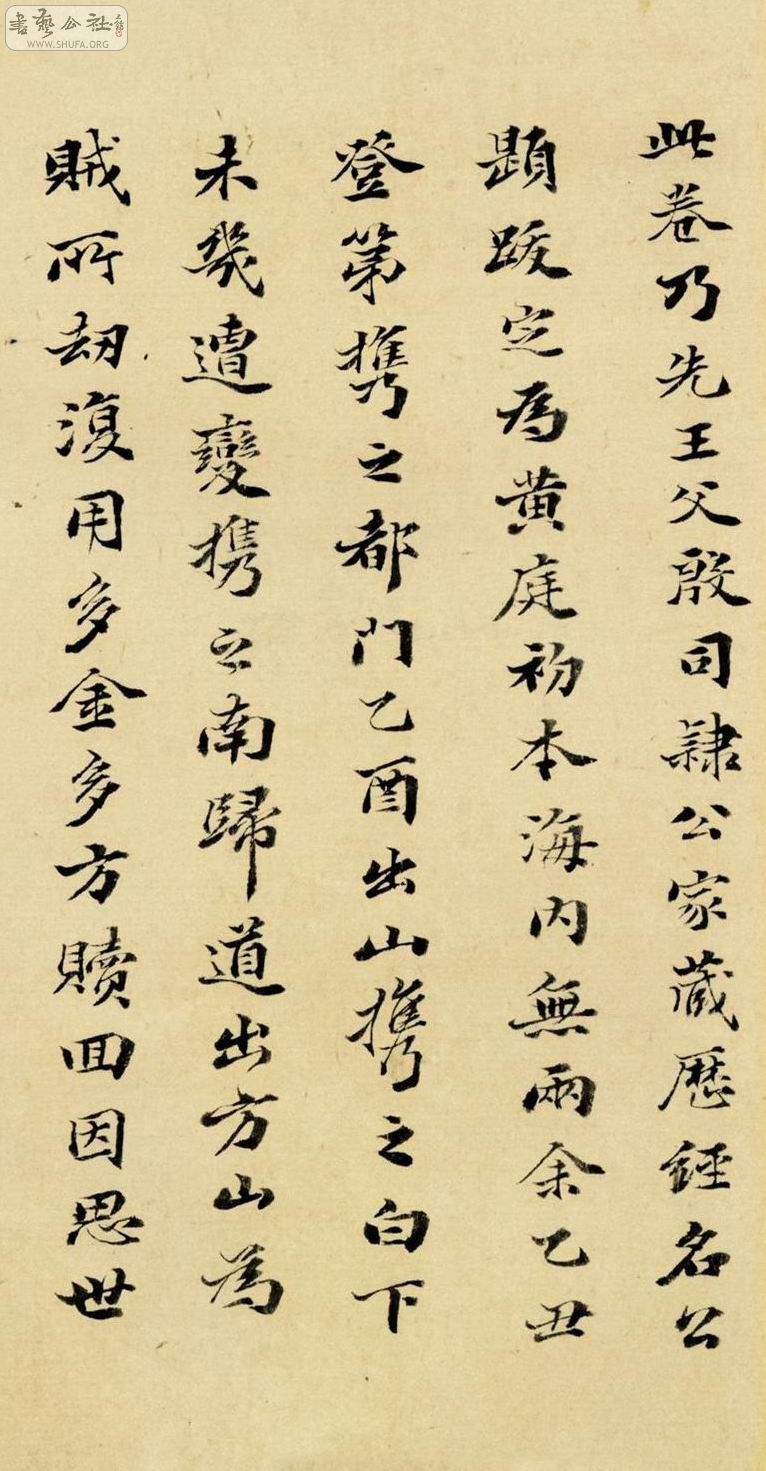 此卷乃先王父殷司隸公家藏歷經名公
題跋定為黄庭初本海内無兩余乙丑
登第攜之都門乙酉出山攜之白下
未幾遭變攜之南歸道出方山為
賊所劫復用多金多方贖回因思世
書藝公社
WWW.SHUFA.ORG